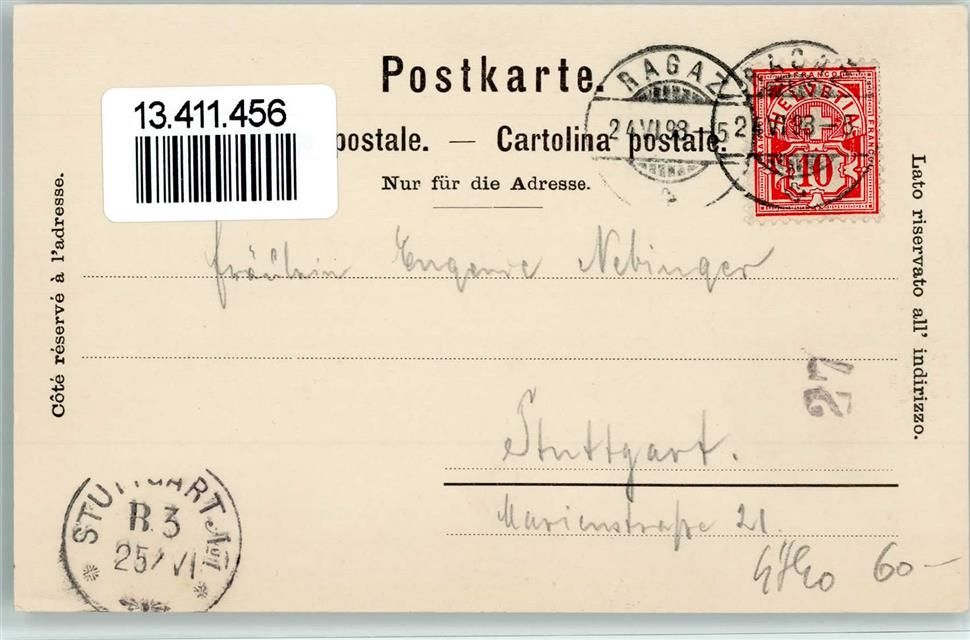 Postkarte.
13.411.456
postale. — Cartolina postale.
Nur für die Adresse.
RAGAZ
24 VI 98
RAGAZ
FRANCO
HELVETIA
FRANCO
10
Côté réservé à l'adresse.
Lato riservato all' indirizzo.
Fräulein Eugenie Nebinger
27
Stuttgart.
Marienstraße 21.
STUTTGART No 1
B. 3
25/VI
60 —